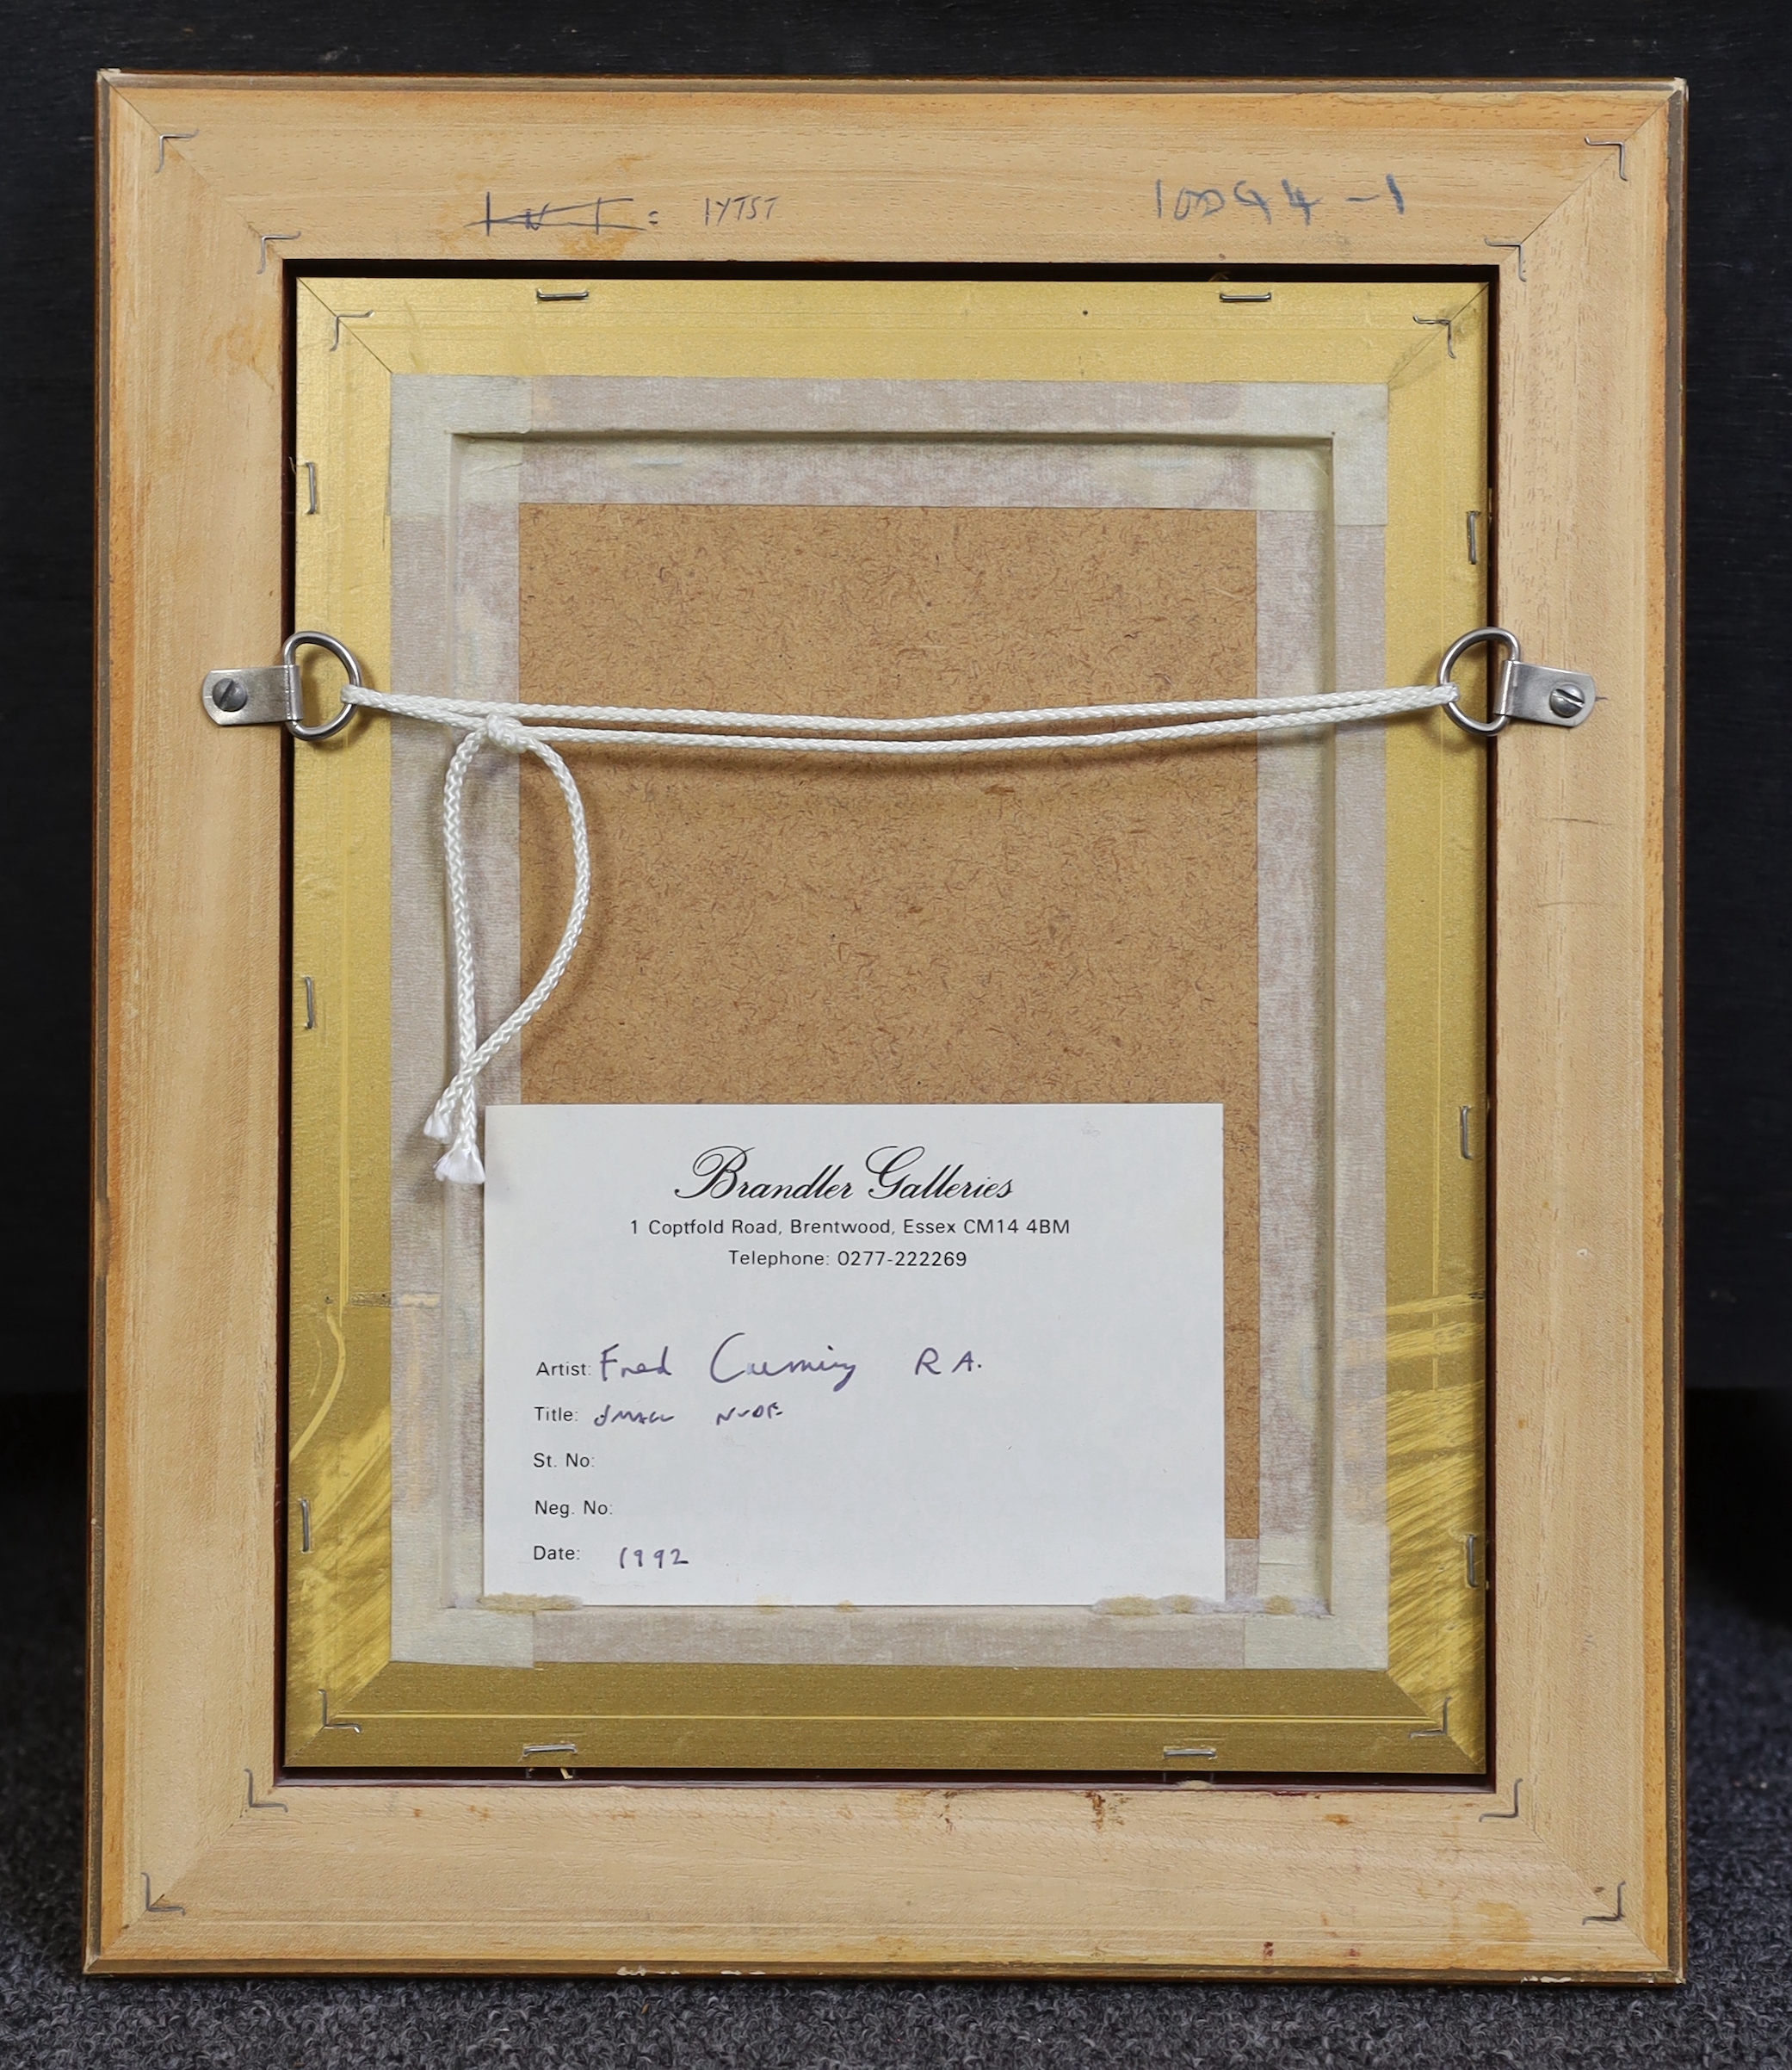 = IYTST
10094-1
Brandler Galleries
1 Coptfold Road, Brentwood, Essex CM14 4BM
Telephone: 0277-222269
Artist: Fred Cuming R A.
Title: SMALL NUDE
St. No:
Neg. No:
Date: 1992